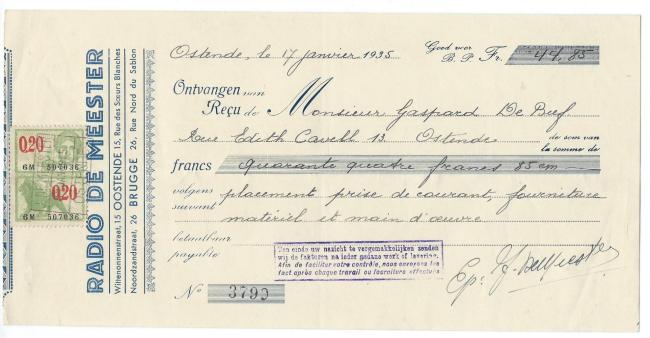 RADIO DE MEESTER
Wittenonnenstraat, 15 OOSTENDE 15, Rue des Sœurs Blanches
Noordzandstraat, 26 BRUGGE 26, Rue Nord du Sablon
0.20
6M 507036
0.20
6M 507036
Ostende, le 17 janvier 1935
Goed voor
B. P. Fr. 44,85
Ontvangen van
Reçu de Monsieur Gaspard De Buf
Rue Edith Cavell 13. Ostende de som van
la somme de
francs quarante quatre francs 85 cm
volgens
suivant placement prise de courant, fourniture
matériel et main d'œuvre
betaalbaar
payable
Ten einde uw nazicht te vergemakkelijken zenden
wij de fakturen na ieder gedane werk of levering.
Afin de faciliter votre contrôle, nous envoyons les
fact après chaque travail ou fourniture effectués
No 3790